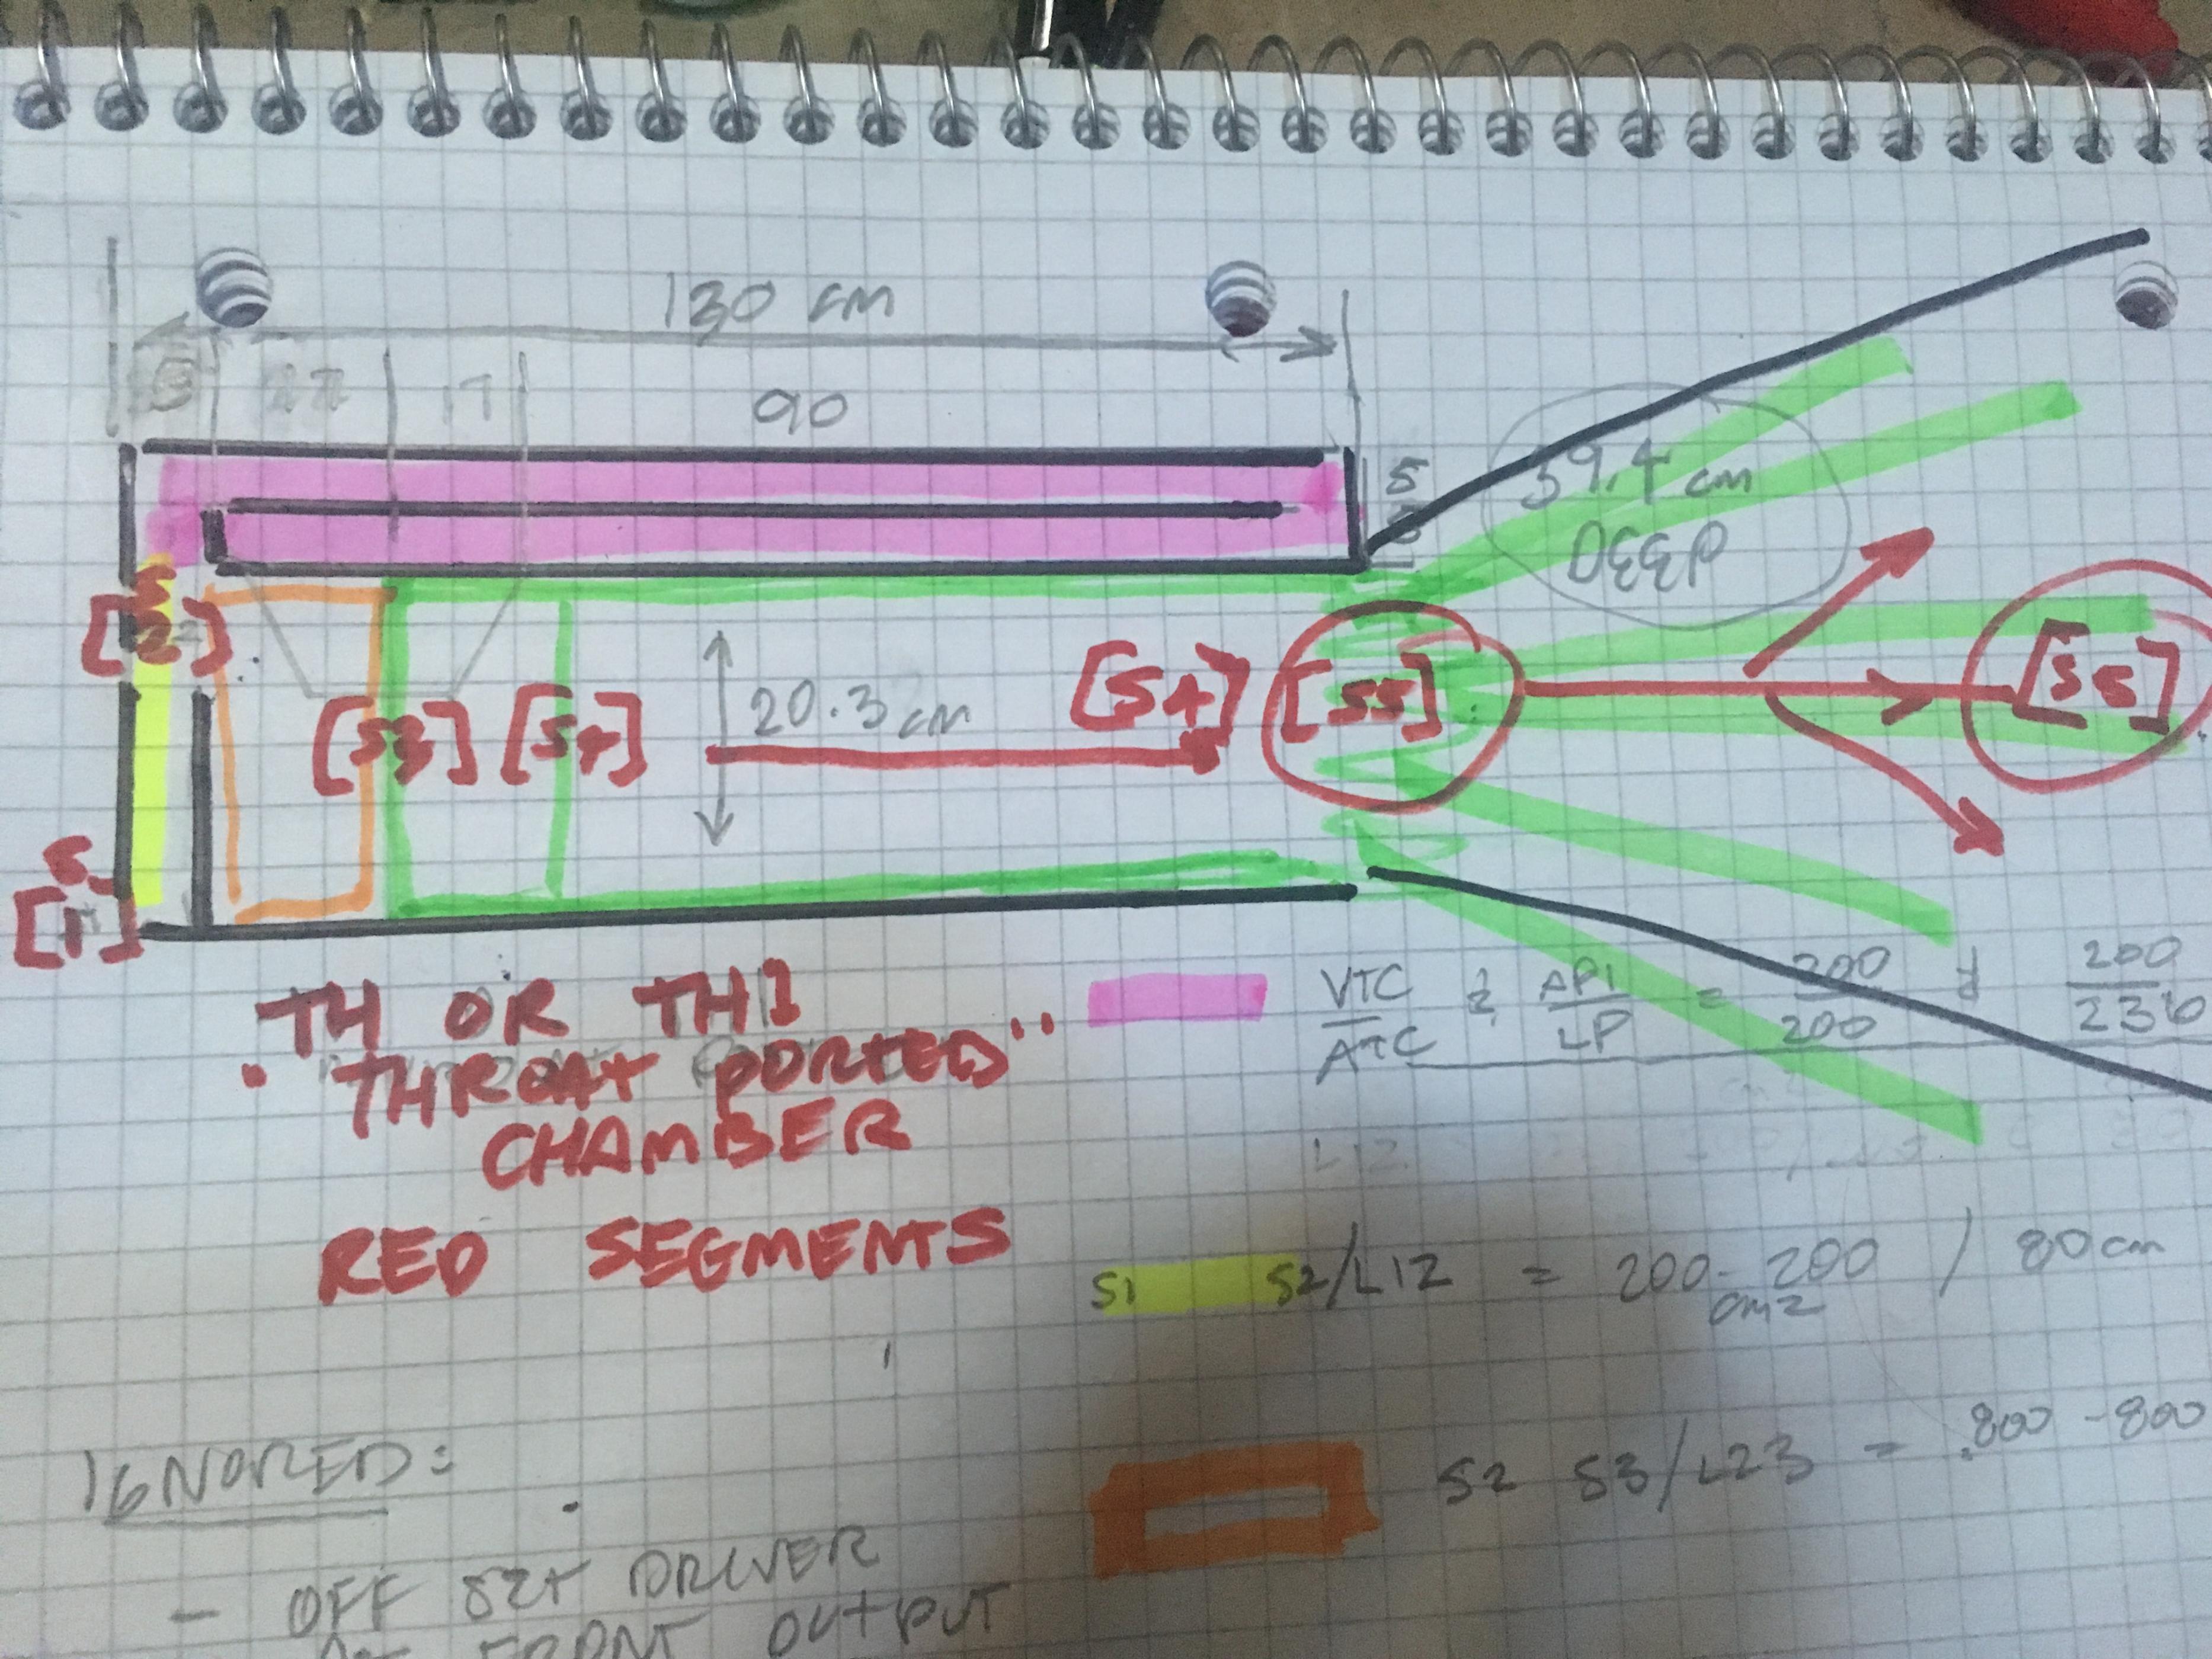 130 cm
22 17 90
5
59.4 cm
DEEP
[S2]
[S3] [S4] 20.3 cm [S4] [S5] [S5]
S
[1]
TH OR TH1
"THROAT PORTED"
CHAMBER
RED SEGMENTS
VTC & AP1 = 200 & 200
ATC LP 200 236
L12
S1 S2/L12 = 200-200 / 80cm
cm2
S2 S3/L23 = 800-800
IGNORED:
- OFF SET DRIVER
FRONT OUTPUT